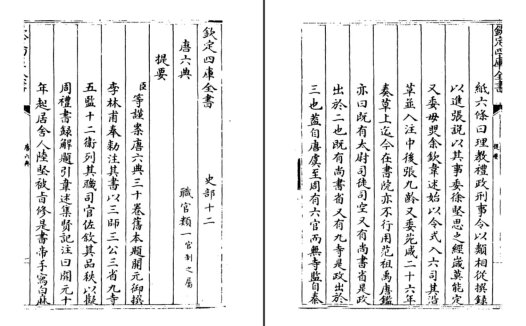 欽定四庫全書
唐六典 史部十二
職官類一官制之屬
提要
臣等謹案唐六典三十卷舊本題開元御撰
李林甫奉勅注其書以三師三公三省九寺
五監十二衛列其職司官佐敘其品秩以擬
周禮書録解題引韋述集賢記注曰開元十
年起居舍人陸堅被㫖修是書帝手寫白麻
紙六條曰理教禮政刑事令以類相從撰録
以進張説以其事委徐堅思之經歲莫能定
又委毋煚余欽韋述始以令式入六司其沿
革並入注中後張九齡又委苑咸二十六年
奏草上迄今在書院亦不行用范祖禹唐鑑
亦曰既有太尉司徒司空又有尚書省是政
出於二也既有尚書省又有九寺是政出於
三也蓋自唐虞至周有六官而無寺監自秦
欽定四庫全書
唐六典
提要